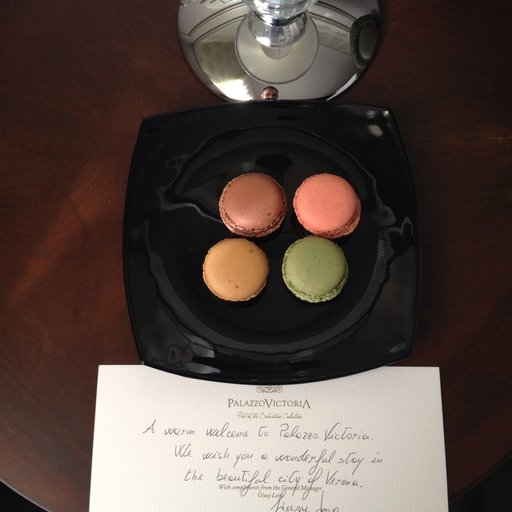 PALAZZO VICTORIA
Part of the Salvatori Collection
A warm welcome to Palazzo Victoria.
We wish you a wonderful stay in
the beautiful city of Verona.
With compliments from the General Manager
Giusy